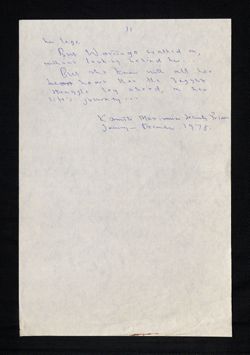 her legs.
But Wariinga walked on,
without looking behind her.
But she knew with all her
heart that the
struggle lay ahead, in her
life's journey...
Kamiti Maximum Security Prison
January - December 1978.